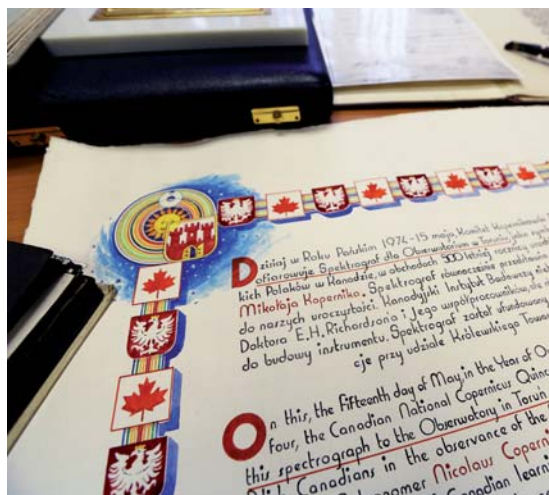 Dzisiaj w Roku Pańskim 1974-15 maja, Komitet Kopernikowski
ofiarowuje Spektrograf dla Obserwatorium w Toruniu jako
kich Polaków w Kanadzie, w obchodach 500 letniej rocznicy
Mikołaja Kopernika. Spektrograf równocześnie
do naszych uroczystości. Kanadyjski Instytut Badawczy
Doktora E.H. Richardson'a i Jego współpracowników,
do budowy instrumentu. Spektrograf został ufundowany
cje przy udziale Królewskiego
On this, the Fifteenth day of May, in the Year of
four, the Canadian National Copernicus
this spectrograph to the Observatory in Toruń
Canadians in the observance of the
Nicolaus
Canadian